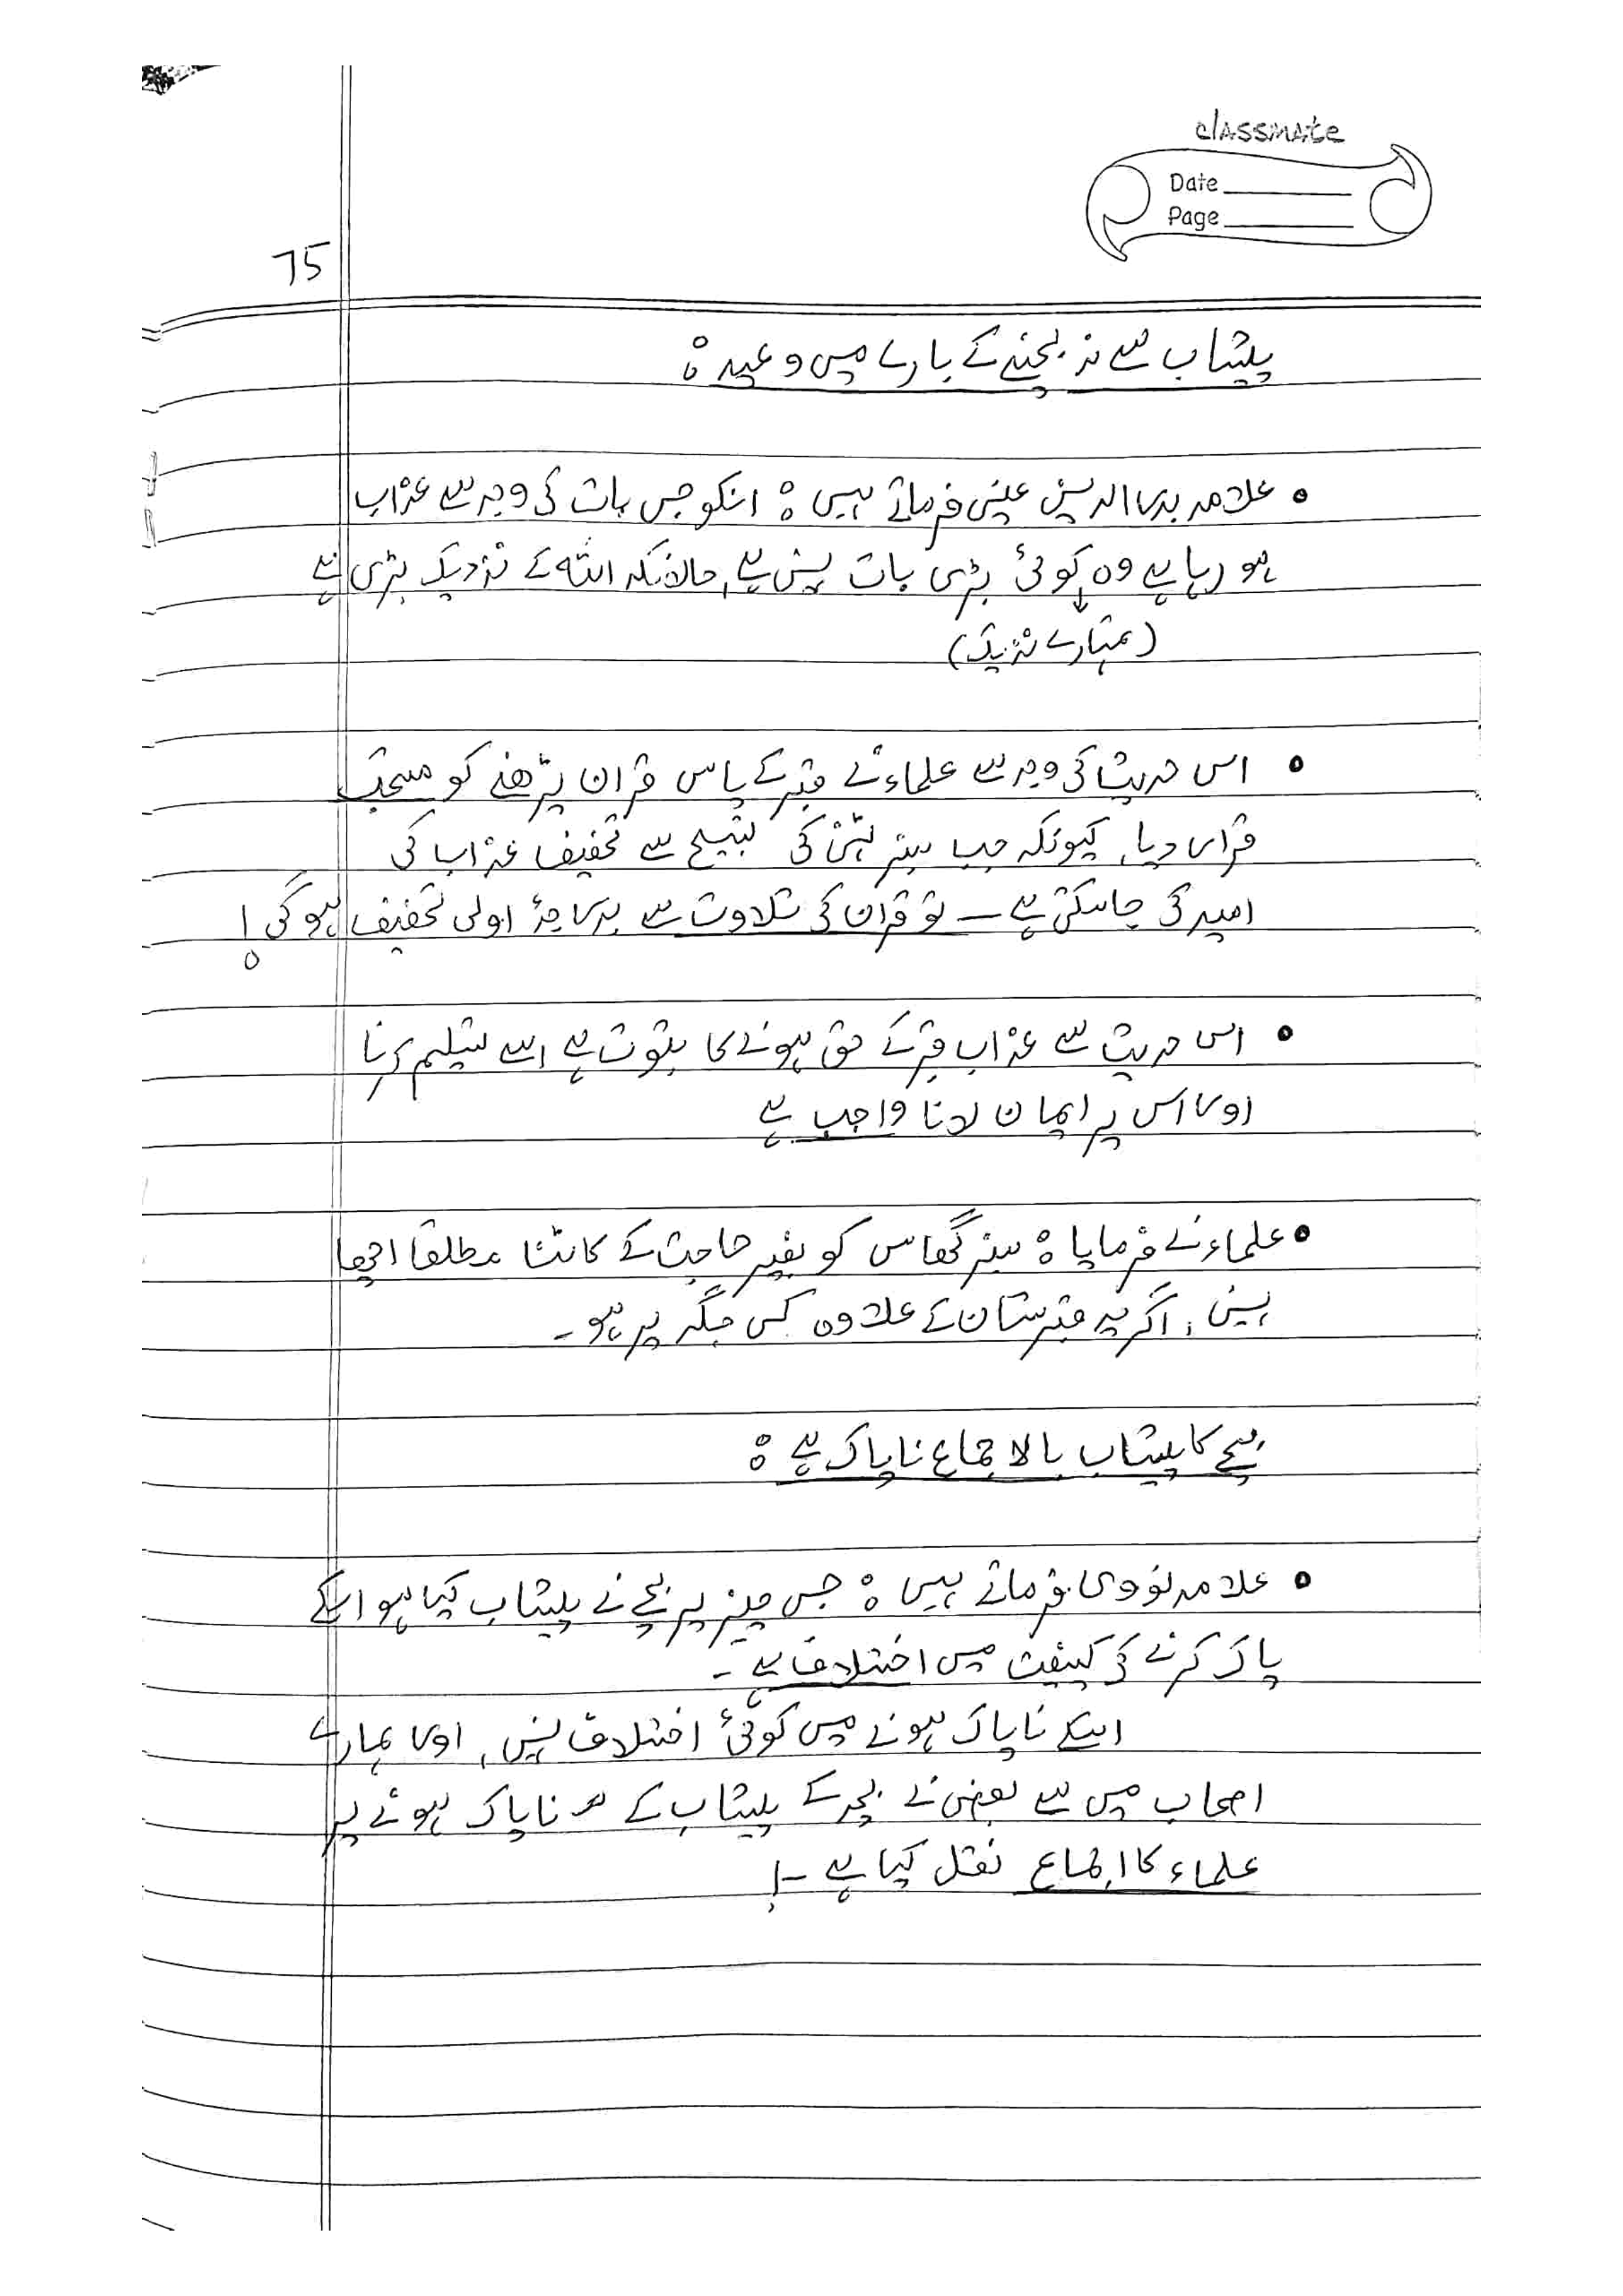 classmate
Date
Page
75
پیشاب سے نہ بچنے کے بارے میں وعید :
• علامہ بدر الدین عینی فرماتے ہیں : انکو جس بات کی وجہ سے عذاب
ہو رہا ہے وہ کوئی بڑی بات نہیں ہے، حالانکہ اللہ کے نزدیک بڑی ہے
(تمہارے نزدیک)
• اس حدیث کی وجہ سے علماء نے قبر کے پاس قرآن پڑھنے کو مستحب
قرار دیا، کیونکہ جب سبز ٹہنی کی تسبیح سے تخفیف عذاب کی
امید کی جاسکتی ہے – تو قرآن کی تلاوت سے بدرجۂ اولی تخفیف ہوگی !
• اس حدیث سے عذاب قبر کے حق ہونے کا ثبوت ہے اسے تسلیم کرنا
اور اس پر ایمان لانا واجب ہے
• علماء نے فرمایا : سبز گھاس کو بغیر حاجت کے کاٹنا مطلقا اچھا
نہیں، اگرچہ قبرستان کے علاوہ کسی جگہ پر ہو۔
بچے کا پیشاب بالاجماع ناپاک ہے :
• علامہ نووی فرماتے ہیں : جس چیز پر بچے نے پیشاب کیا ہو اسکے
پاک کرنے کی کیفیت میں اختلاف ہے ۔
اسکے ناپاک ہونے میں کوئی اختلاف نہیں، اور ہمارے
اصحاب میں سے بعض نے بچہ کے پیشاب کے ناپاک ہونے پر
علماء کا اجماع نقل کیا ہے –!